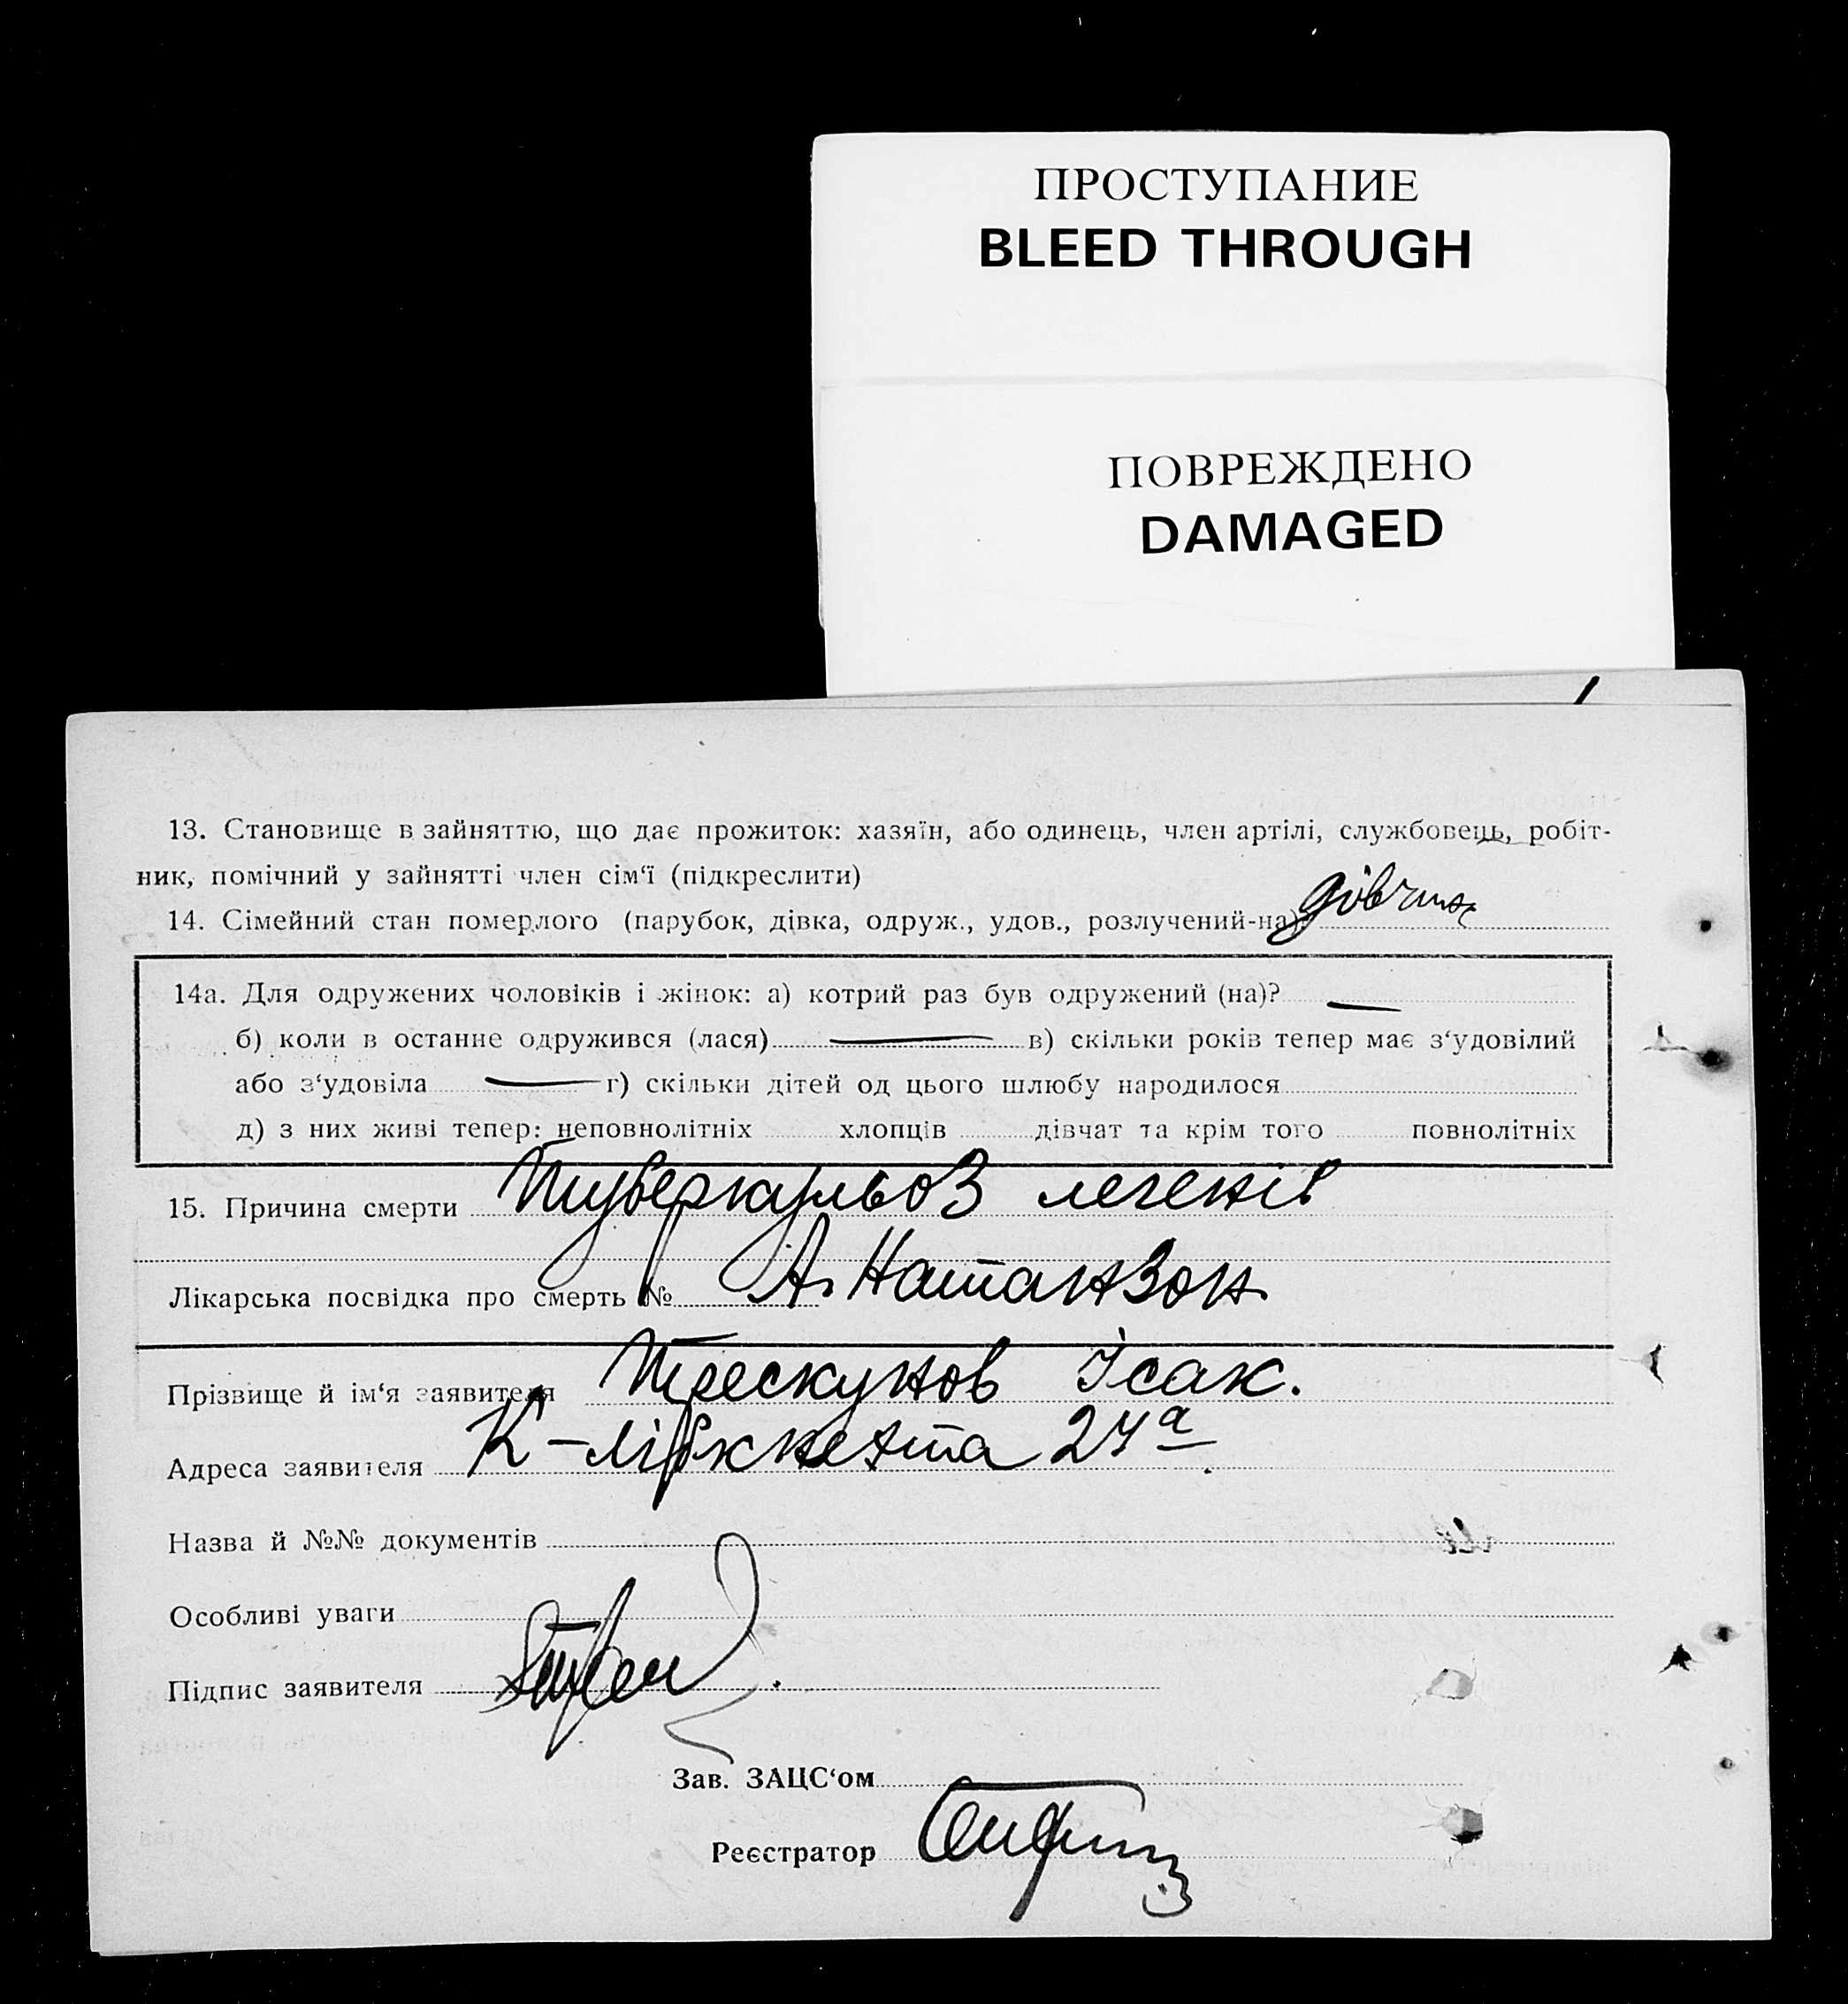 ПРОСТУПАНИЕ
BLEED THROUGH
ПОВРЕЖДЕНО
DAMAGED
13. Становище в зайняттю, що дає прожиток: хазяїн, або одинець, член артілі, службовець, робіт-
ник, помічний у зайнятті член сім‘ї (підкреслити)
14. Сімейний стан померлого (парубок, дівка, одруж., удов., розлучений-на)
14а. Для одружених чоловіків і жінок: а) котрий раз був одружений (на)? —
б) коли в останнє одружився (лася) — в) скільки років тепер має з‘удовілий
або з‘удовіла — г) скільки дітей од цього шлюбу народилося
д) з них живі тепер: неповнолітніх хлопців дівчат та крім того повнолітніх
15. Причина смерти Туберкульоз легенів
Лікарська посвідка про смерть № А. Натанзон.
Прізвище й ім‘я заявителя Трескунов Ісак.
Адреса заявителя К-Лібкнехта 27а.
Назва й №№ документів
Особливі уваги
Підпис заявителя
Зав. ЗАЦС‘ом
Реєстратор